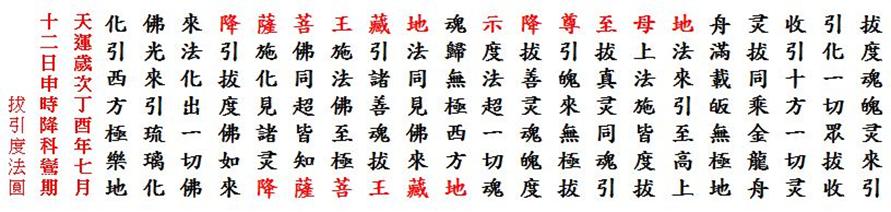 拔度魂魄灵來引
引化一切眾拔收
收引十方一切灵
灵拔同乘金龍舟
舟滿載皈無極地
地法來引至高上
母上法施皆度拔
至拔真灵同魂引
尊引魄來無極拔
降拔善灵魂魄度
示度法超一切魂
魂歸無極西方地
地法同見佛來藏
藏引諸善魂拔王
王施法佛至極菩
菩佛同超皆知薩
薩施化見諸灵降
降引拔度佛如來
來法化出一切佛
佛光來引琉璃化
化引西方極樂地
天運歲次丁酉年七月
十二日申時降科鸞期
拔引度法圓